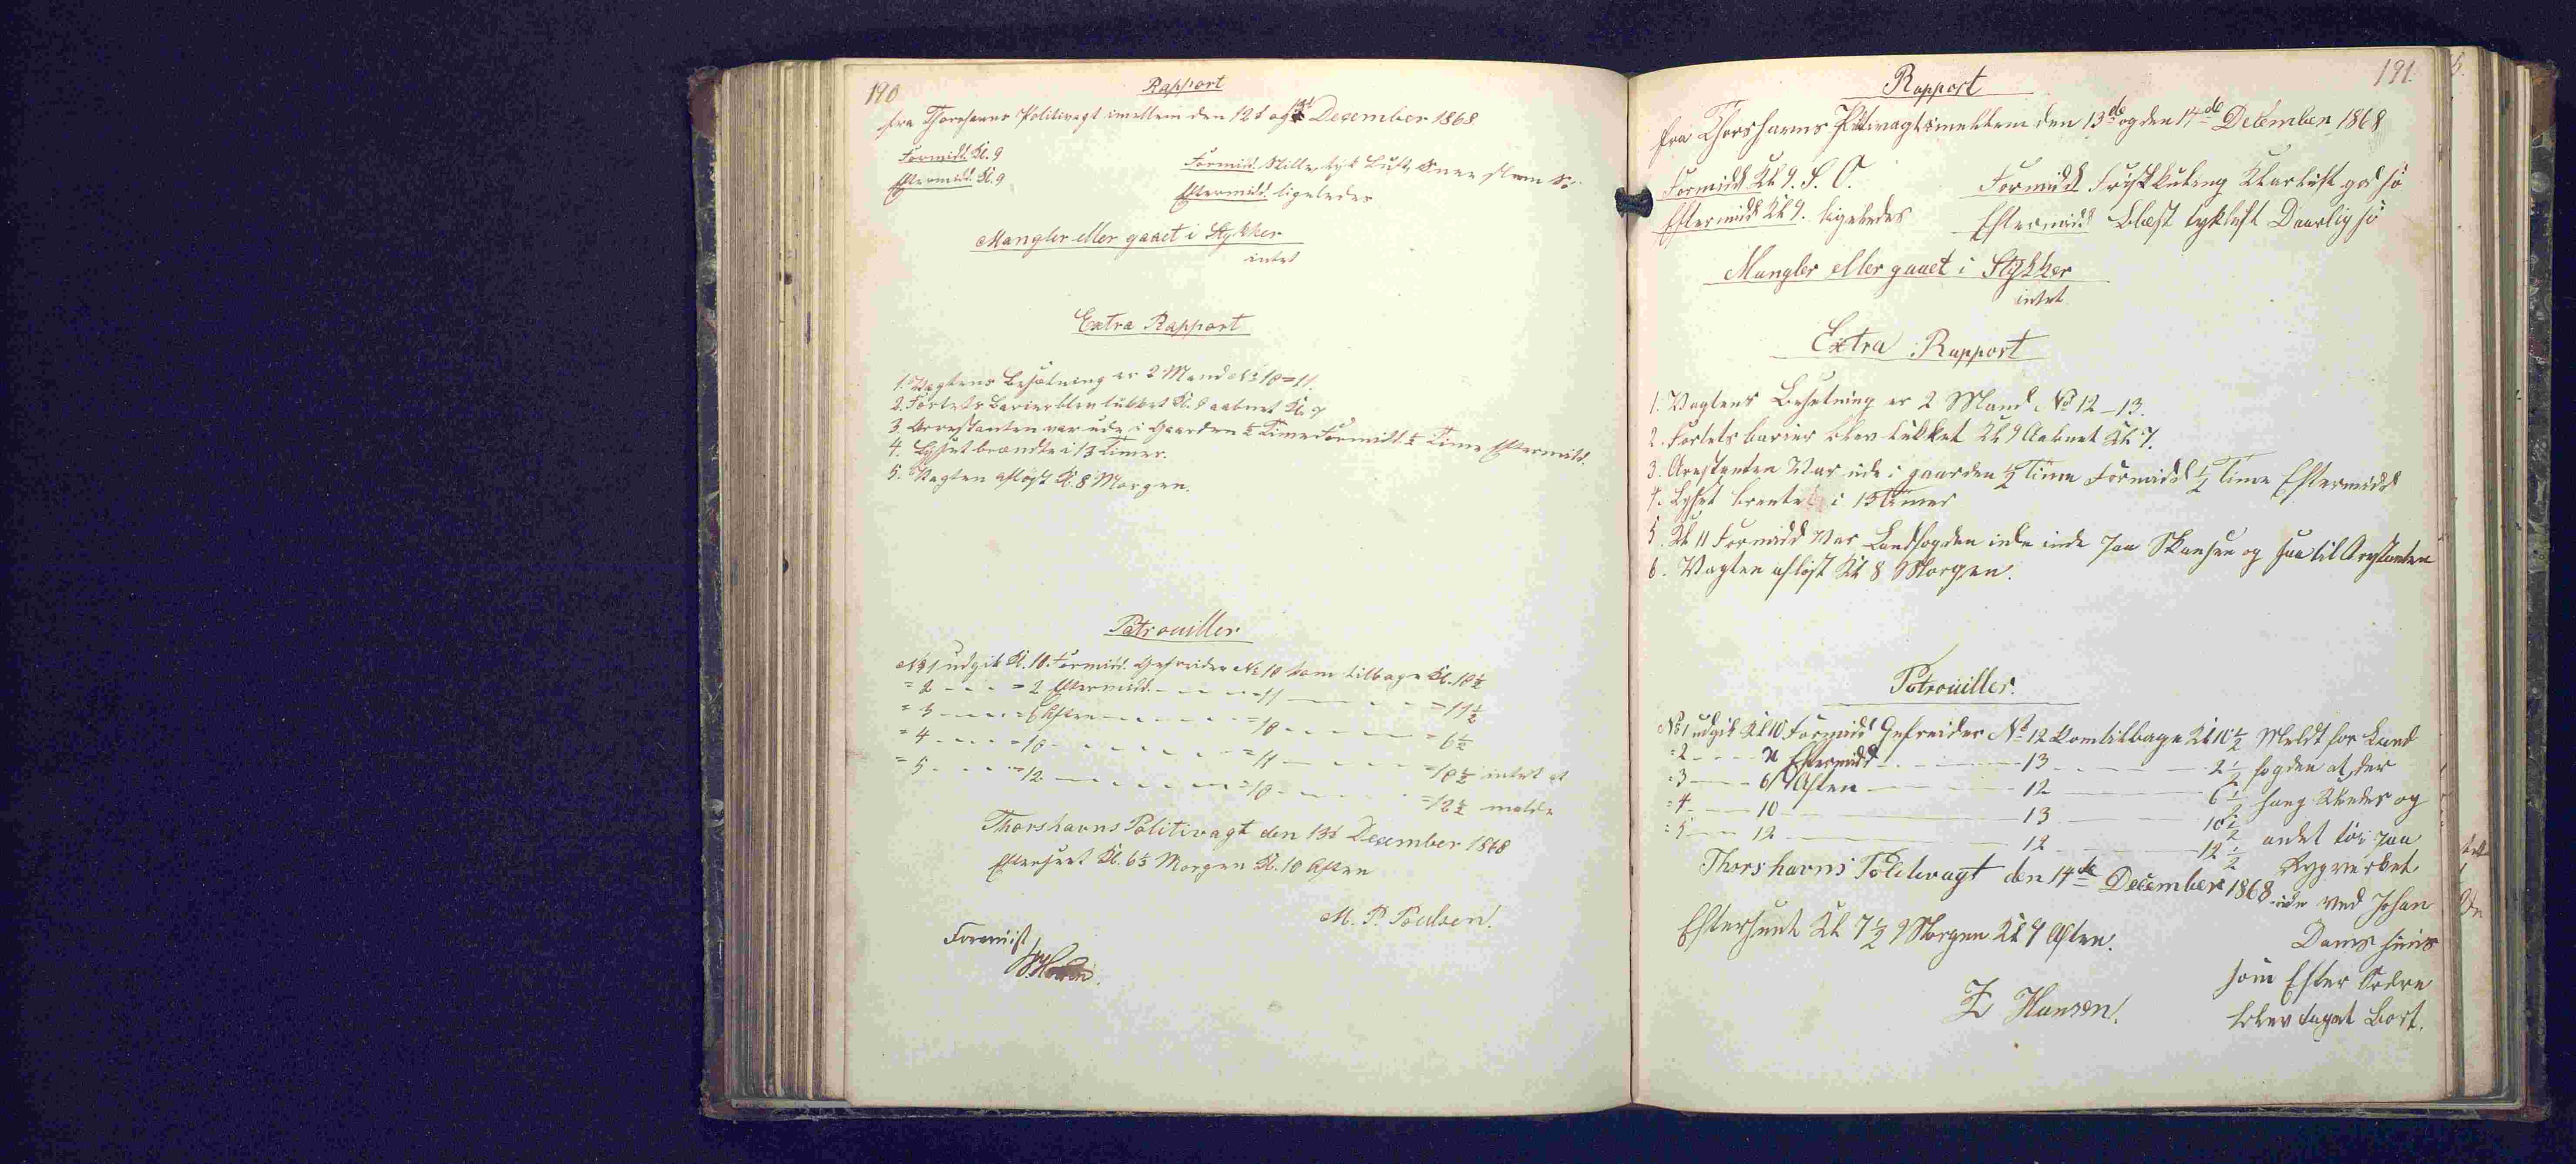 190
Rapport
fra Thorshavns Politivagt imellem den 12t og 13t December 1868
Formidd. Kl. 9
Eftermidd. Kl. 9
Formidd. Stille, tyk Luft, Snee slem Sø
Eftermidd. ligeledes
Mangler eller gaaet i Stykker
intet
Extra Rapport
1. Vagtens Besætning er 2 Mand No 10 = 11.
2. Fortets Barier blev lukket Kl. 9 aabnet Kl. 7
3. Arrestanten var ude i Gaarden ½ Time Formidd. ½ Time Eftermidd.
4. Lyset brændte i 13 Timer.
5. Vagten afløst Kl. 8 Morgen.
Patrouiller
No 1 udgik Kl. 10. Formidd. Gefreider No 10 kom tilbage Kl. 10½
= 2 - - - = 2 Eftermidd. - - - - = 11 - - - - = 11½
= 3 - - - = 6 Aften - - - - = 10 - - - - = 6½
= 4 - - - = 10 - - - - = 11 - - - - = 10½ intet at
= 5 - - - = 12 - - - - = 10 - - - - = 12½ melde
Thorshavns Politivagt den 13t December 1868
Efterseet Kl. 6½ Morgen Kl. 10 Aften
M. P. Poulsen.
Foreviist
191.
Rapport
fra Thorshavns Politivagt imellem den 13de og den 14de December 1868
Formidd Kl 9. S. O.
Eftermidd Kl 9. ligeledes
Formidd Frisk kuling Klarluft god sö
Eftermidd Blæst tykluft Daarlig sö
Mangler eller gaaet i Stykker
intet
Extra Rapport
1. Vagtens Besetning er 2 Mand No 12 - 13.
2. Fortets barier blev lukket Kl 9 Aabnet Kl 7.
3. Arestanten Var ude i gaarden ½ Time Formidd ½ Time Eftermidd
4. Lyset brente i 13 Timer
5. Kl 11 Formidd Var Landfogden inde paa Skansen og saa til Arestanten
6. Vagten aflöst Kl 8 Morgen.
Patrouiller.
No 1 udgik Kl 10 Formidd Gefreider No 12 kom tilbage Kl 10½ Meldt for Land
= 2 - - - 2 Eftermidd - - - 13 - - - 2½ fogden at der
= 3 - - - 6 Aften - - - 12 - - - 6½ hang Kleder og
= 4 - - - 10 - - - 13 - - - 10½ andet töi paa
= 5 - - - 12 - - - 12 - - - 12½ Rygverket
Thorshavns Politivagt den 14de December 1868 ude ved Johan
Efterseet Kl 7½ Morgen Kl 9 Aften. Dams huus
som Efter Ordre
blev taget Bort.
Z Hansen.